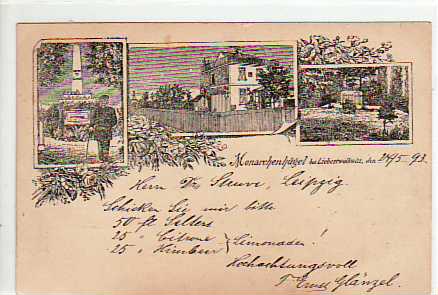 Monarchenhügel bei Liebertwolkwitz, den 24/5. 93.
Herrn Dr. Struve, Leipzig.
Schicken Sie mir bitte
50 fl Selters
25 " Citrone
25 " Himbeer } Limonaden!
Hochachtungsvoll
F. Ernst Glänzel.